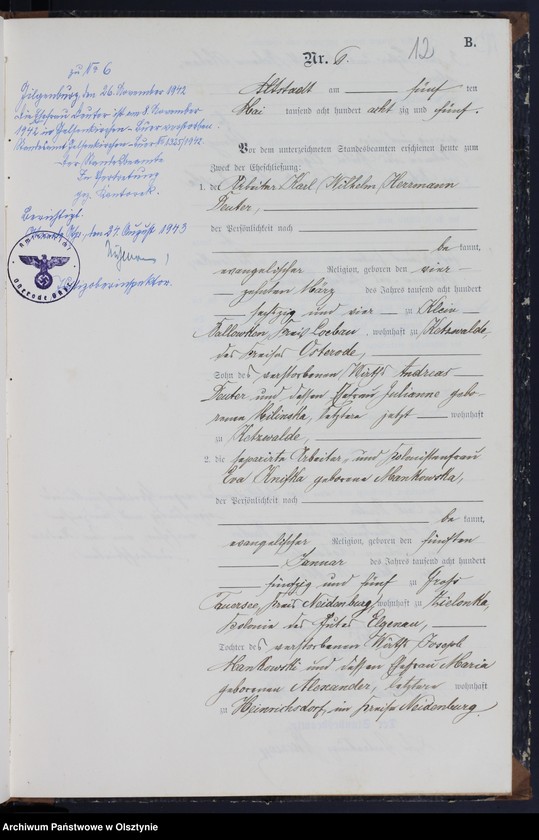 12
B.
Nr. 6.
zu No 6
Gilgenburg, den 26. November 1942
Die Ehefrau Deuter ist am 8. November
1942 in Gelsenkirchen-Buer verstorben.
Standesamt Gelsenkirchen-Buer No 1325/1942.
Der Standesbeamte
In Vertretung
gez. Kantorek.
Berichtigt.
den 27. August 1943
Kreisoberinspektor.
Altstadt am fünf ten
Mai tausend acht hundert acht zig und fünf.
Vor dem unterzeichneten Standesbeamten erschienen heute zum
Zweck der Eheschließung:
1. der Arbeiter Karl Wilhelm Herrmann
Deuter,
der Persönlichkeit nach
be kannt,
evangelischer Religion, geboren den vier-
zehnten März des Jahres tausend acht hundert
sechszig und vier zu Klein
Tallowken, Kreis Loebau, wohnhaft zu Ketzwalde,
des Kreises Osterode,
Sohn des verstorbenen Wirths Andreas
Deuter und dessen Ehefrau Julianne gebo-
renen Milinska, letztere jetzt wohnhaft
zu Ketzwalde,
2. die separirte Arbeiter- und Kolonistenfrau
Eva geborene Mankowska,
der Persönlichkeit nach
be kannt,
evangelischer Religion, geboren den fünften
Januar des Jahres tausend acht hundert
fünfzig und fünf zu Gross
Tauersee, Kreis Neidenburg, wohnhaft zu Zielonka,
Kolonie des Gutes Elgenau,
Tochter des verstorbenen Wirths Joseph
Mankowski und dessen Ehefrau Maria
geborenen Alexander, letztere wohnhaft
zu Heinrichsdorf, im Kreise Neidenburg.
Archiwum Państwowe w Olsztynie